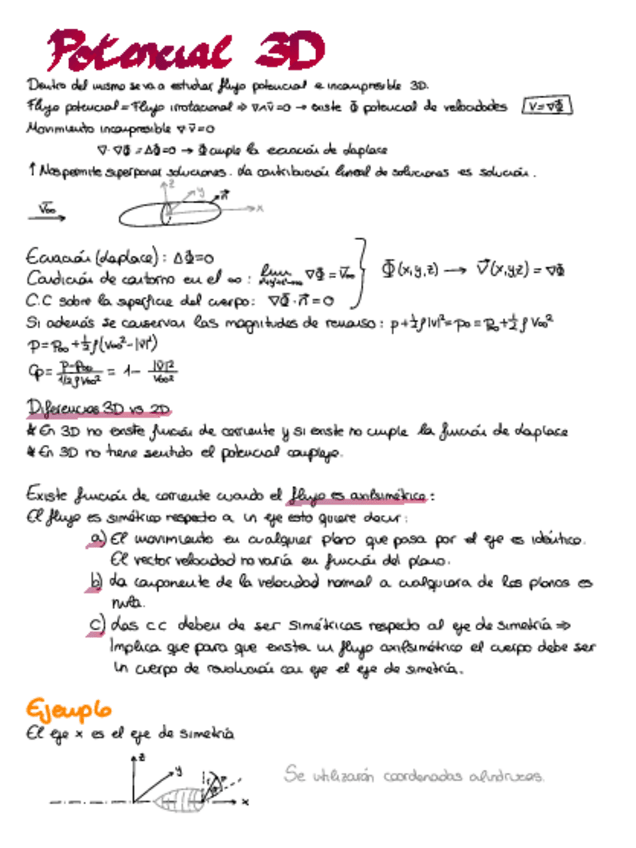 Potencial 3D
Dentro del mismo se va a estudiar flujo potencial e incompresible 3D.
Flujo potencial = Flujo irrotacional ⇒ ∇∧v̄=0 → existe Φ̄ potencial de velocidades V=∇Φ̄
Movimiento incompresible ∇·v̄=0
∇·∇Φ̄ = ΔΦ̄=0 → Φ̄ cumple la ecuación de Laplace
↑ Nos permite superponer soluciones. La contribución lineal de soluciones es solución.
V̄∞ z y n̄ x
Ecuación (Laplace): ΔΦ̄=0
Condición de contorno en el ∞: lim ∇Φ̄ = V̄∞ Φ̄(x,y,z) → V̄(x,y,z) = ∇Φ̄
C.C sobre la superficie del cuerpo: ∇Φ̄·n̄ = 0
Si además se conservan las magnitudes de remanso: p+½ρ|v|²=p₀=p∞+½ρV∞²
p=p∞+½ρ(V∞²-|v|²)
Cp= (p-p∞)/(1/2ρV∞²) = 1- |v̄|²/V∞²
Diferencias 3D vs 2D
* En 3D no existe función de corriente y si existe no cumple la función de Laplace
* En 3D no tiene sentido el potencial complejo.
Existe función de corriente cuando el flujo es axilsimétrico:
El flujo es simétrico respecto a un eje esto quiere decir:
a) El movimiento en cualquier plano que pasa por el eje es idéntico.
El vector velocidad no varía en función del plano.
b) La componente de la velocidad normal a cualquiera de los planos es
nula.
c) Las CC deben de ser simétricas respecto al eje de simetría ⇒
Implica que para que exista un flujo axilsimétrico el cuerpo debe ser
un cuerpo de revolución con eje el eje de simetría.
Ejemplo
El eje x es el eje de simetría
z y r x
Se utilizarán coordenadas cilíndricas.